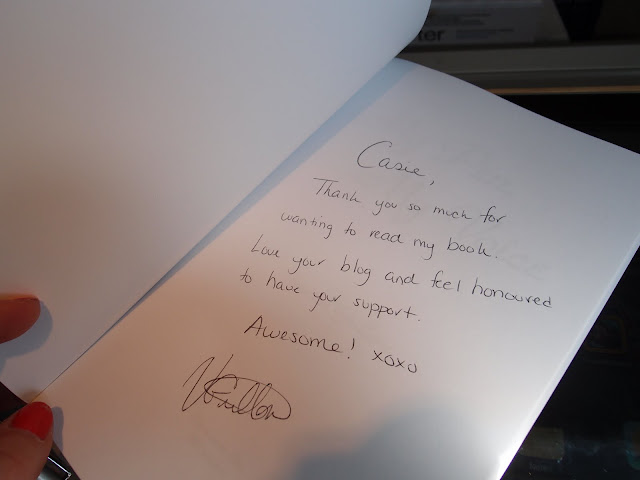 ter
Casie,
Thank you so much for
wanting to read my book.
Love your blog and feel honoured
to have your support.
Awesome! xoxo